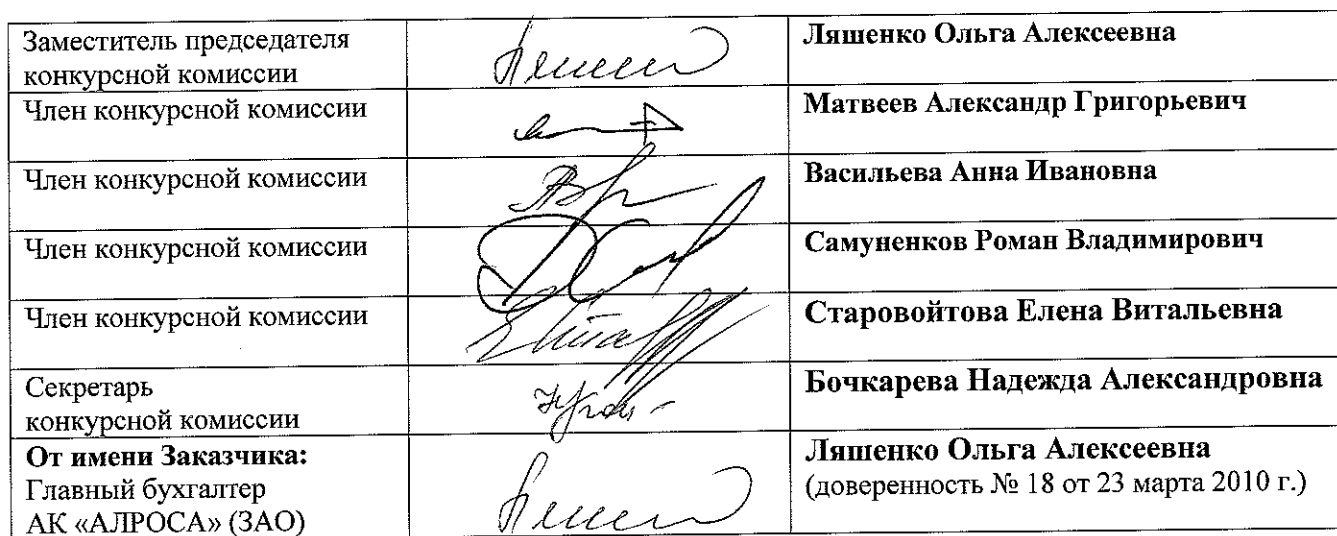 Заместитель председателя
конкурсной комиссии
Ляшенко Ольга Алексеевна
Член конкурсной комиссии
Матвеев Александр Григорьевич
Член конкурсной комиссии
Васильева Анна Ивановна
Член конкурсной комиссии
Самуненков Роман Владимирович
Член конкурсной комиссии
Старовойтова Елена Витальевна
Секретарь
конкурсной комиссии
Бочкарева Надежда Александровна
От имени Заказчика:
Главный бухгалтер
АК «АЛРОСА» (ЗАО)
Ляшенко Ольга Алексеевна
(доверенность № 18 от 23 марта 2010 г.)